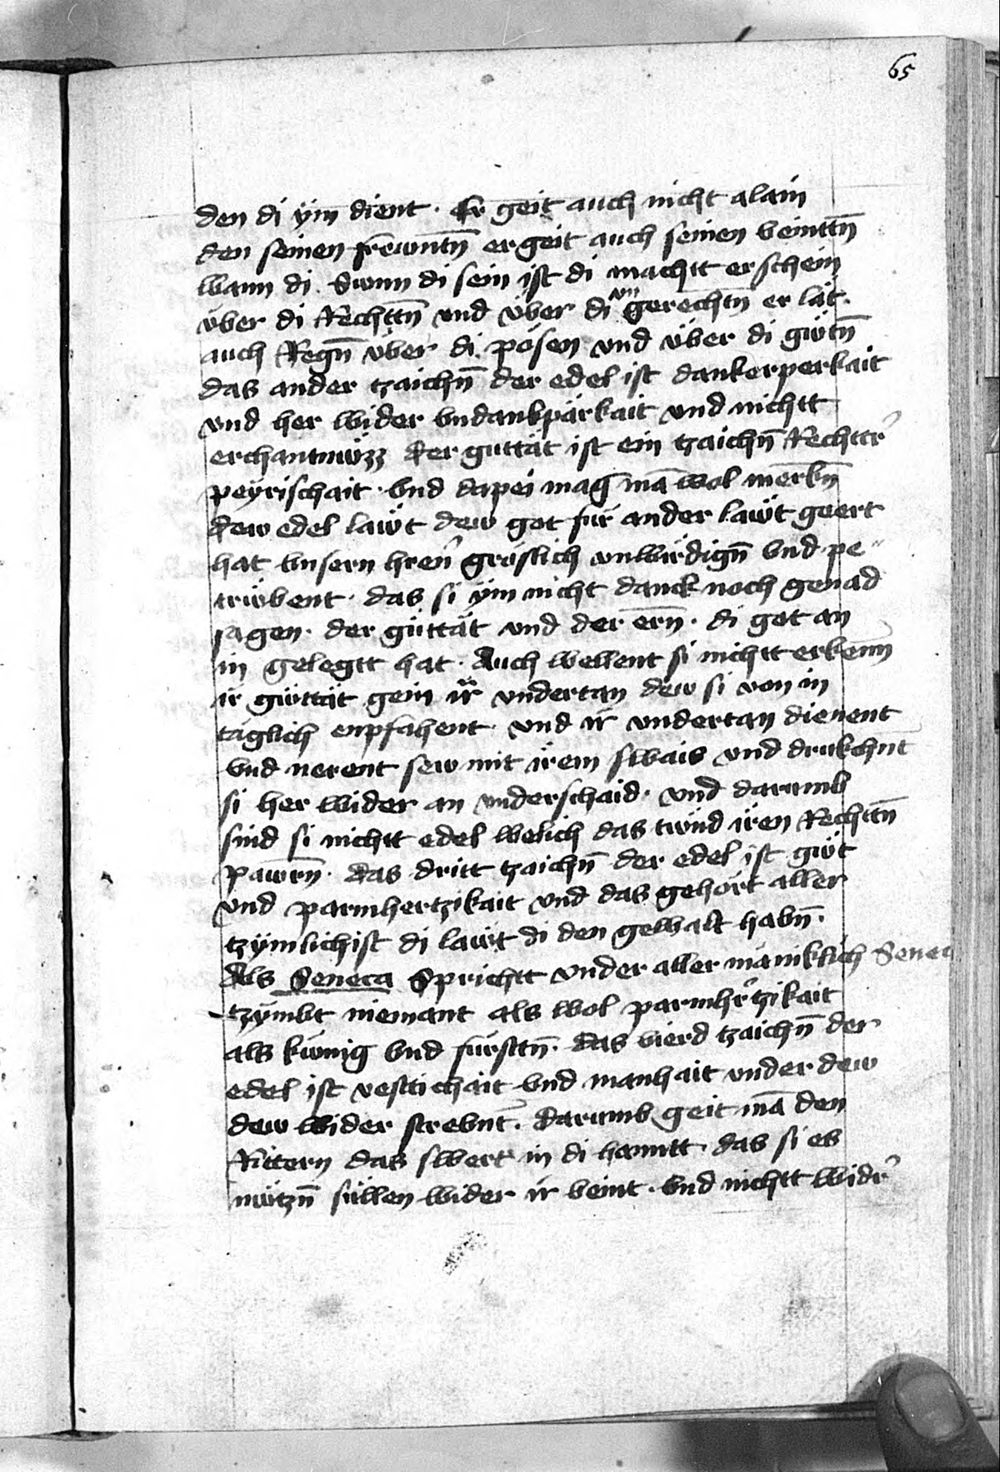 65
den di ÿm dient · Er geit auch nicht alain
den seinen frewntn̄ er geit auch seinen veinttn̄
wann di Sunn di sein ist di machtt er schein
über di Rechttn̄ vnd über di vngerechtn̄ er lät
auch Regn̄ über di pösen vnd über di gütn̄
das ander tzaichn̄ der edel ist dankerperkait
vnd her wider vndankpärkait vnd nichtt
erchantnüzz der guttät ist ein tzaichn̄ Rechttr̛
peyrischait · Vnd dapei mag mā wol merkn̄
dew edel läwt dew got für ander läwt geert
hat Vnsern hren̄ gröslich vnwirdign̄ Vnd pe
trübent · das si ÿm nicht danck noch genad
sagen · der güttät vnd der ern̄ · di got an
in gelegtt hat · Auch wellent si nichtt erkenn̄
ir güttät gein ir vndertan dew si von in
täglich enpfahent · vnd ir vndertan dienent
Vnd nerent sew mit irem swais vnd drukchnt
si her wider an vnderschaid · vnd darumb
sind si nichtt edel welich das tund iren Rechttn̄
pawrn̄ · das dritt tzaichn̄ der edel ist güt
vnd parmhertzikait vnd das gehört aller
tzÿmlichist di läwt di den gewalt habn̄ ·
Als Seneca Sprichtt vnder aller mäniklich Senec
tzÿmbt niemant als wol parmhr̛tzikait
als künig Vnd fürsttn̄ · das vierd tzaichn̄ der
edel ist vestichait Vnd manhait vnder dew
dew wider strebnt · darumb geit mā den
Rittern das swert in di hanntt das si es
nützn̄ süllen wider ir veint · Vnd nichtt widr̛